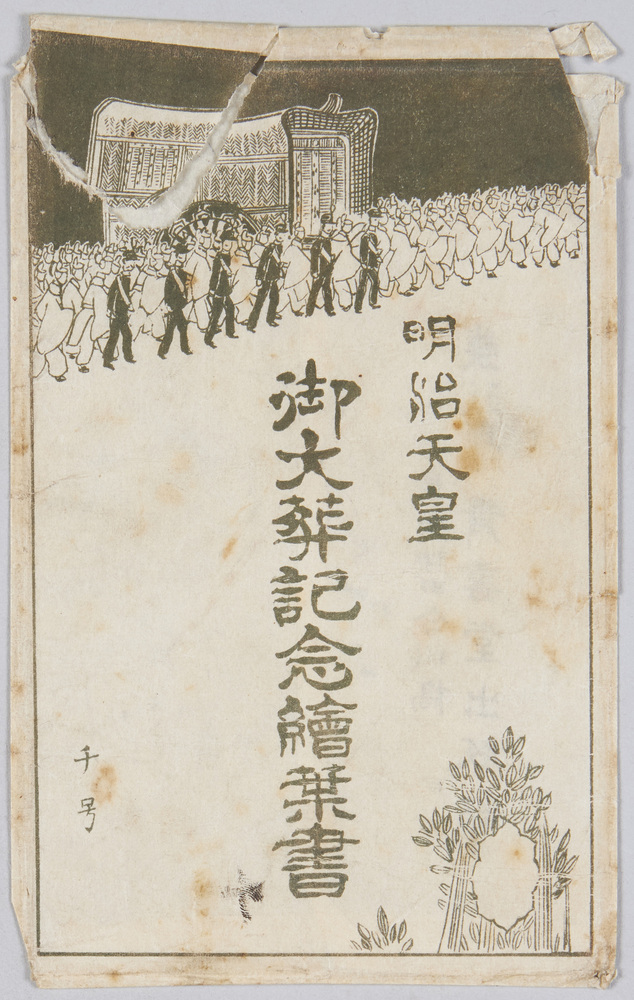 明治天皇
御大葬記念繪葉書
千号